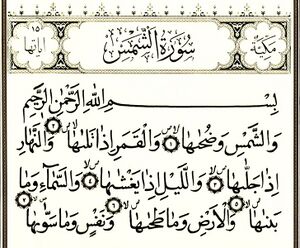 مكية
سورة الشمس
١٥
اياتها
بسم الله الرحمن الرحيم
والشمس وضحىها ١ والقمر اذا تلىها ٢ والنهار
اذا جلىها ٣ والليل اذا يغشىها ٤ والسماء وما
بنىها ٥ والارض وما طحىها ٦ ونفس وما سوىها